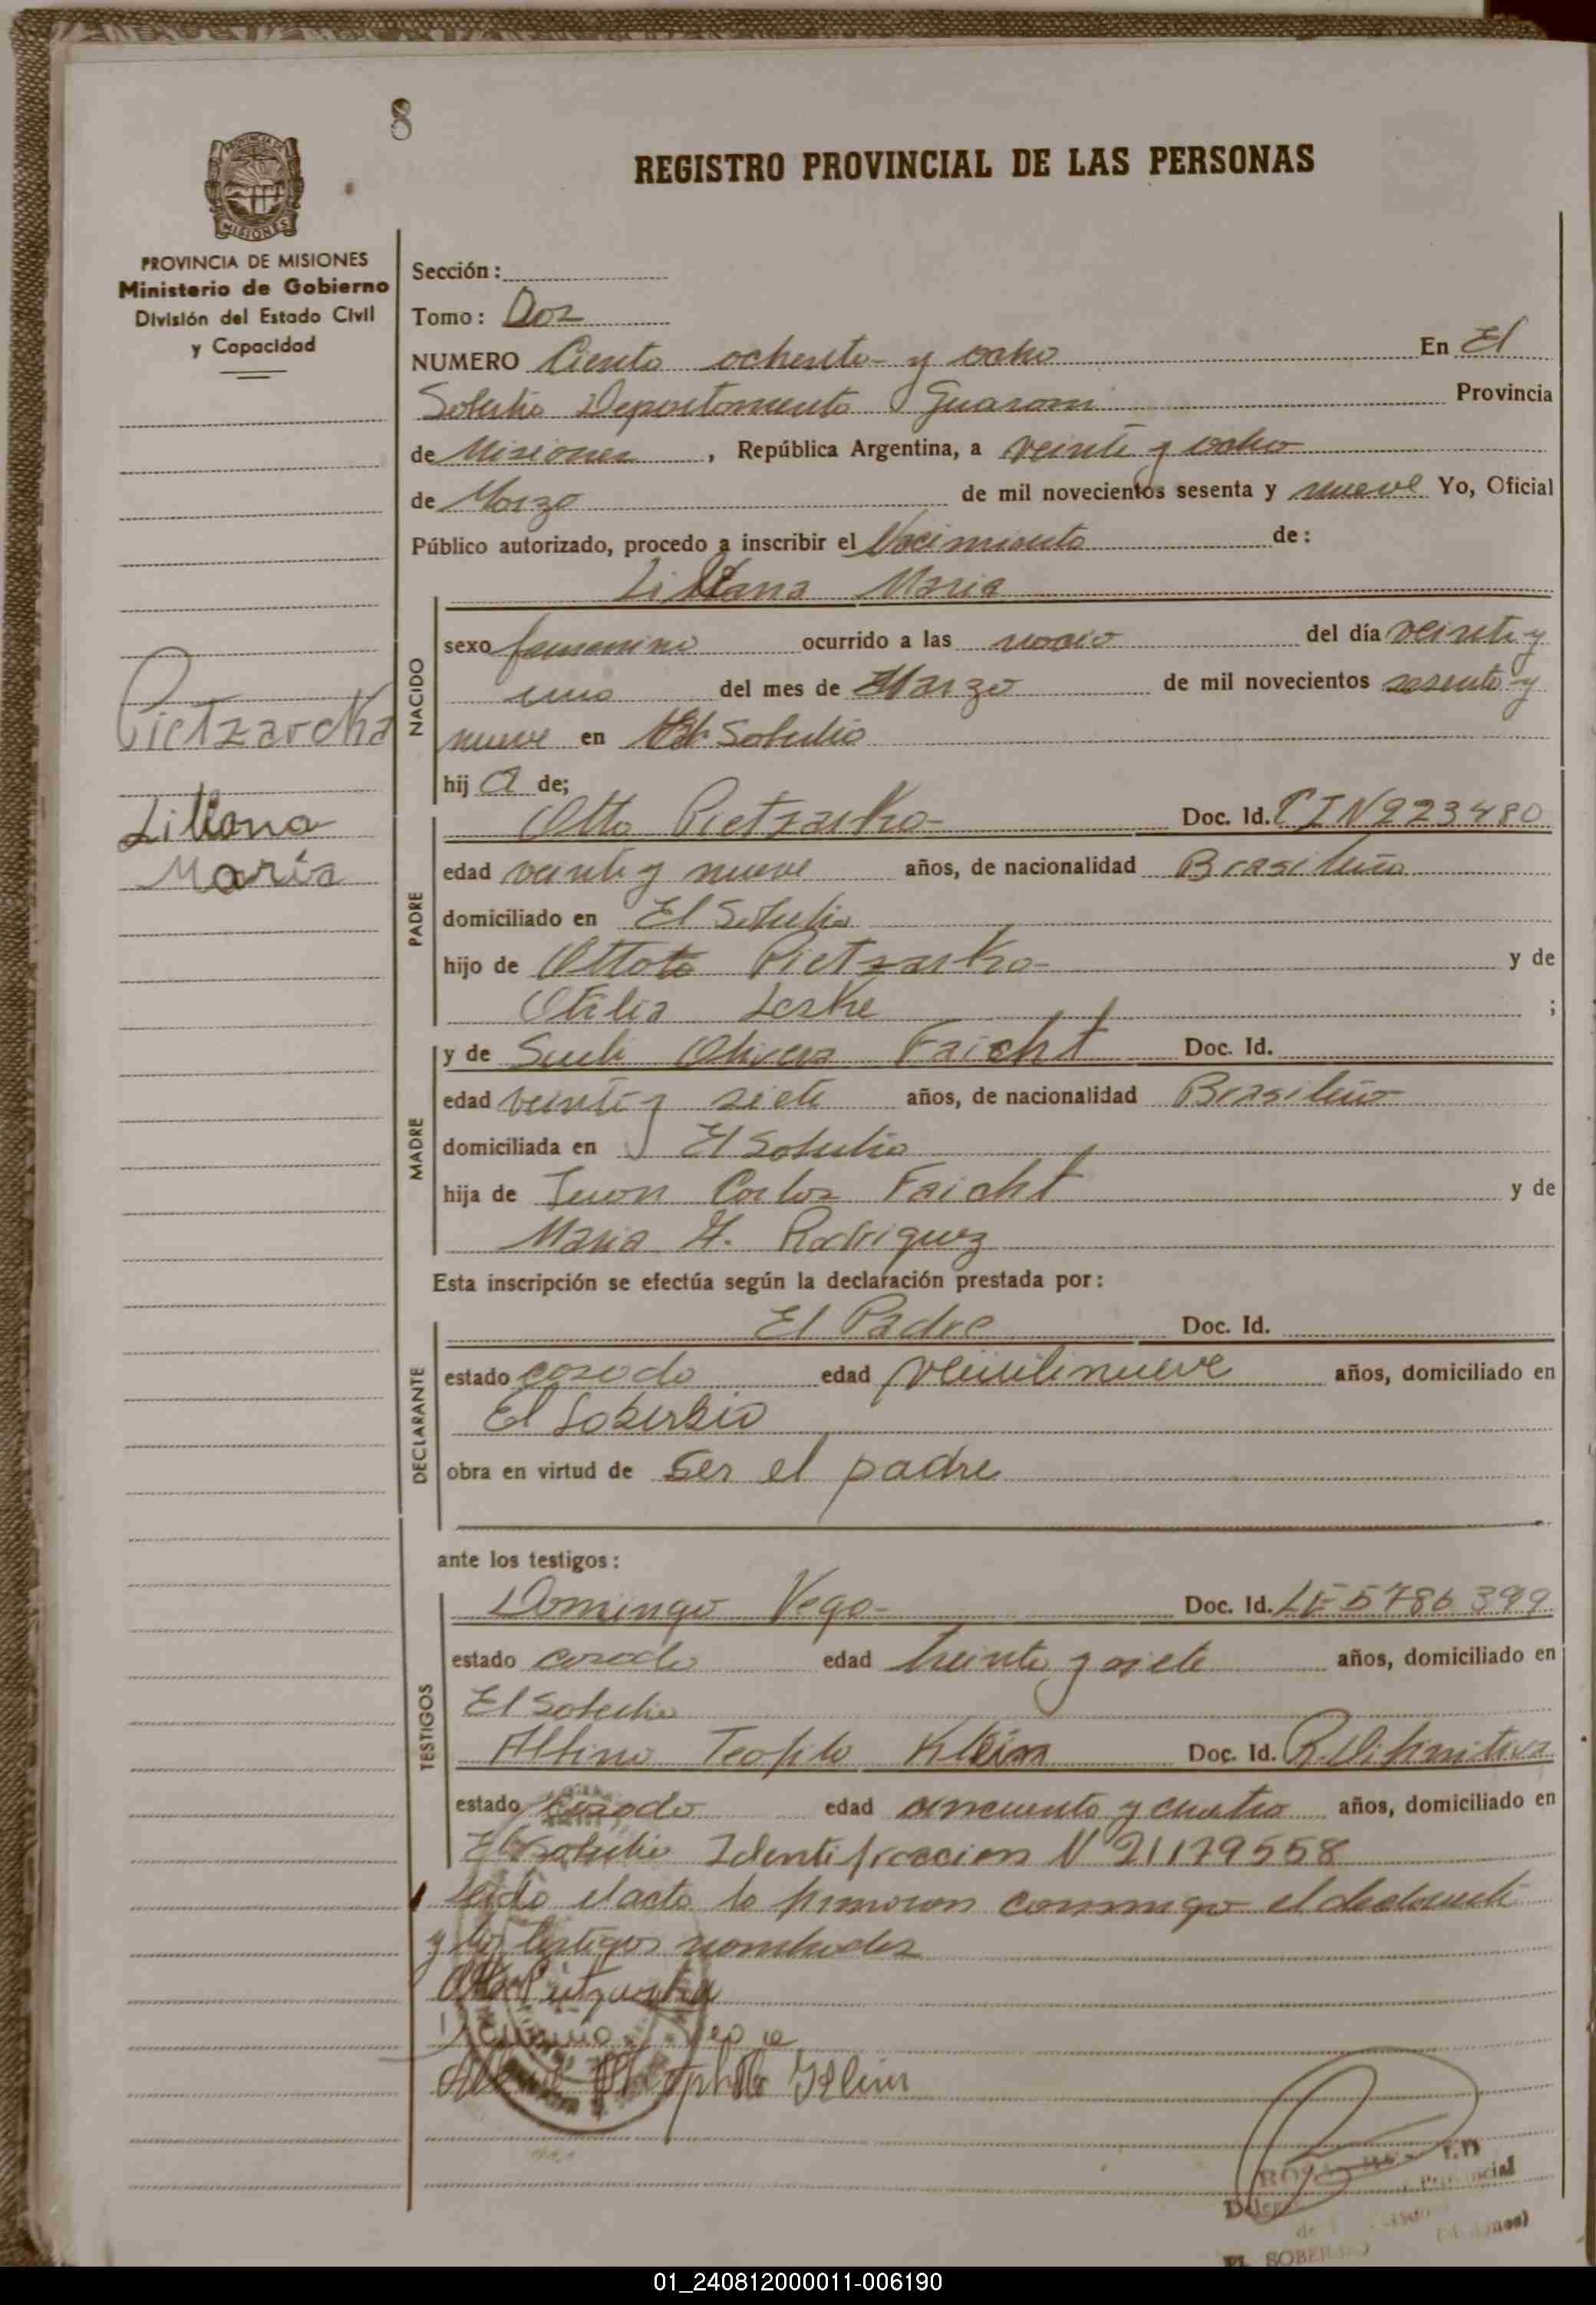 8
REGISTRO PROVINCIAL DE LAS PERSONAS
PROVINCIA DE MISIONES
Ministerio de Gobierno
División del Estado Civil
y Capacidad
Pietzarcka
Liliana
María
Sección:
Tomo: Dos
NUMERO Ciento ochenta y ocho En El
Soberbio Departamento Guarani Provincia
de Misiones, República Argentina, a veinte y ocho
de Marzo de mil novecientos sesenta y nueve Yo, Oficial
Público autorizado, procedo a inscribir el Nacimiento de:
Liliana Maria
NACIDO
sexo femenino ocurrido a las del día veinte y
uno del mes de Marzo de mil novecientos sesenta y
nueve en El Soberbio
hij a de;
PADRE
Otto Pietzarka Doc. Id. CIN 223480
edad veinte y nueve años, de nacionalidad Brasileña
domiciliado en El Soberbio
hijo de Pietzarka y de
Otilia Leske ;
MADRE
y de Sueli Olivera Faicht Doc. Id.
edad veinte y siete años, de nacionalidad Brasileña
domiciliada en El Soberbio
hija de Juan Carlos Faicht y de
Maria H. Rodriguez
Esta inscripción se efectúa según la declaración prestada por:
DECLARANTE
El Padre Doc. Id.
estado casado edad veintinueve años, domiciliado en
El Soberbio
obra en virtud de Ser el padre
ante los testigos:
TESTIGOS
Domingo Vega Doc. Id. LE 5786399
estado casado edad treinta y siete años, domiciliado en
El Soberbio
Albino Teofilo Klein Doc. Id. R. Difinitiva
estado casado edad cincuenta y cuatro años, domiciliado en
El Soberbio Identificacion N 21179558
Leido el acto lo firmaron conmigo el declarante
y los testigos nombrados
EL SOBERBIO
01_240812000011-006190